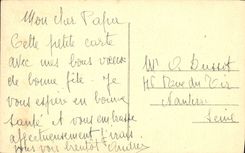 Mon cher Papa
Cette petite carte
avec mes bons vœux
de bonne fête. Je
vous espère en bonne
santé et vous embrasse
affectueusement
vous voir bientôt Andrée
Mr
Rue du Tir
Nanterre
Seine